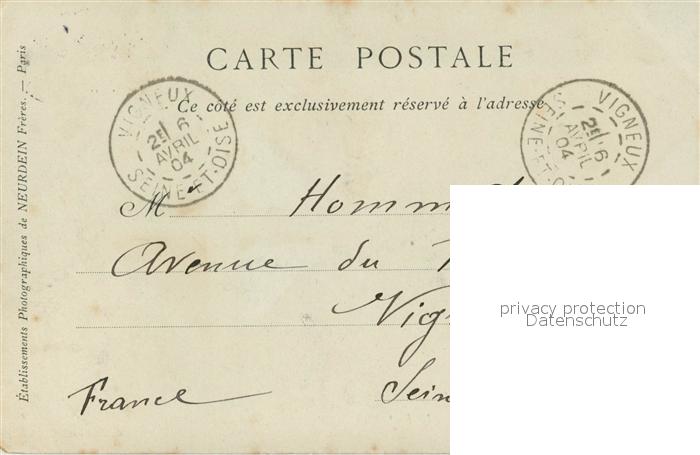 CARTE POSTALE
Ce côté est exclusivement réservé à l'adresse
VIGNEUX
2E 6
AVRIL
04
SEINE-ET-OISE
VIGNEUX
2E 6
AVRIL
04
SEINE-ET-O
M
Homm
Avenue du
Vig
Sein
France
Établissements Photographiques de NEURDEIN Frères. — Paris
privacy protection
Datenschutz